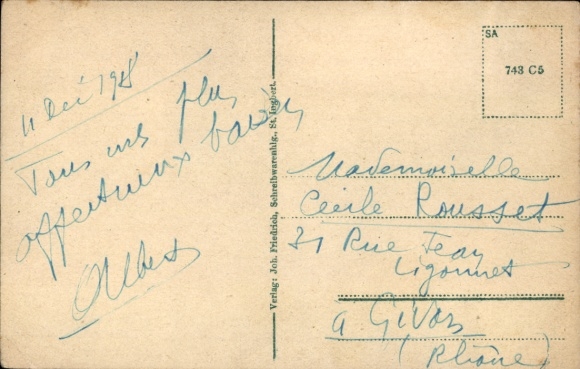 11 Déc 1918
Tous mes plus
affectueux baisers
Albert
Verlag: Joh. Friedrich, Schreibwarenhlg., St. Ingbert.
SA
743 C5
Mademoiselle
Cécile Rousset
31 Rue Jean
Ligonnet
a Givors
(Rhône)